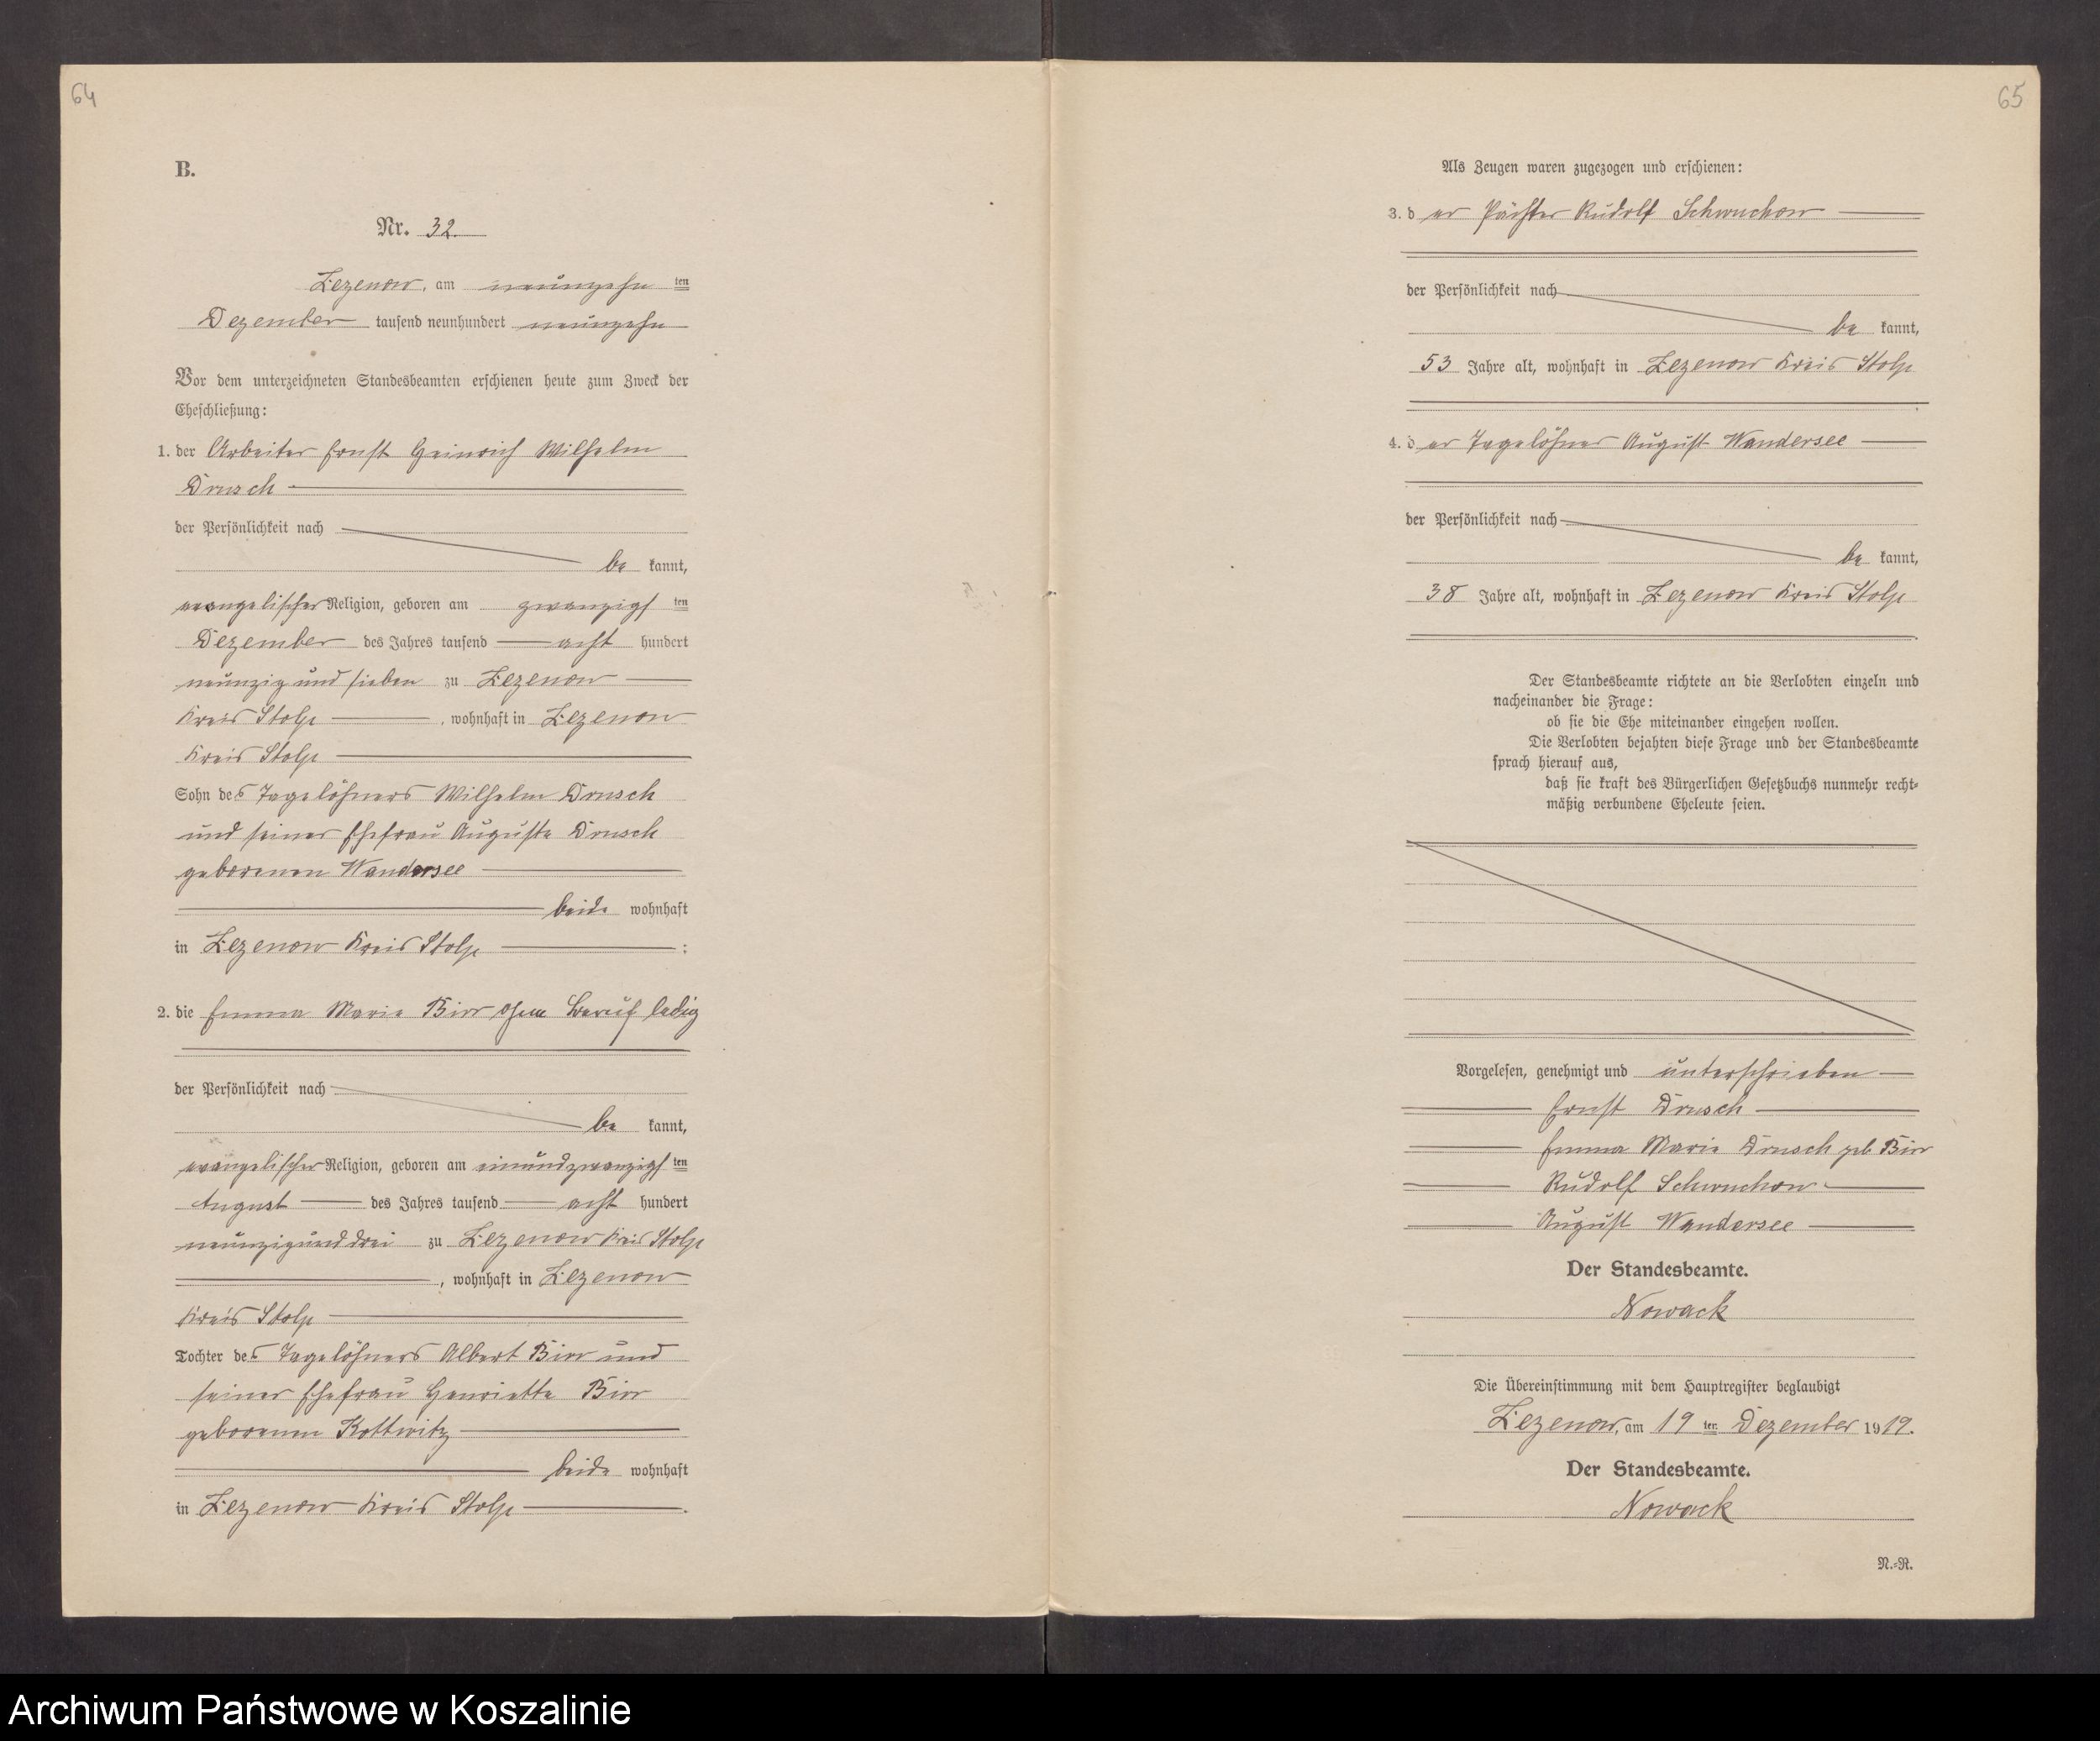 64
B.
Nr. 32.
Zezenow, am neunzehn ten
Dezember tausend neunhundert neunzehn
Vor dem unterzeichneten Standesbeamten erschienen heute zum Zweck der
Eheschließung:
1. der Arbeiter Ernst Heinrich Wilhelm
Drusch
der Persönlichkeit nach
be kannt,
evangelischer Religion, geboren am zwanzigs ten
Dezember des Jahres tausend acht hundert
neunzig und sieben zu Zezenow
Kreis Stolp, wohnhaft in Zezenow
Kreis Stolp
Sohn des Tagelöhners Wilhelm Drusch
und seiner Ehefrau Auguste Drusch
geborenen Wandersee
beide wohnhaft
in Zezenow Kreis Stolp ;
2. die Emma Marie Birr ohne Beruf ledig
der Persönlichkeit nach
be kannt,
evangelischer Religion, geboren am einundzwanzigs ten
August des Jahres tausend acht hundert
neunzigunddrei zu Zezenow Kreis Stolp
, wohnhaft in Zezenow
Kreis Stolp
Tochter des Tagelöhners Albert Birr und
seiner Ehefrau Henriette Birr
geborenen Kottwitz
beide wohnhaft
in Zezenow Kreis Stolp .
65
Als Zeugen waren zugezogen und erschienen:
3. d er Pächter Rudolf Schwuchow
der Persönlichkeit nach
be kannt,
53 Jahre alt, wohnhaft in Zezenow Kreis Stolp
4. d er Tagelöhner August Wandersee
der Persönlichkeit nach
be kannt,
38 Jahre alt, wohnhaft in Zezenow Kreis Stolp
Der Standesbeamte richtete an die Verlobten einzeln und
nacheinander die Frage:
ob sie die Ehe miteinander eingehen wollen.
Die Verlobten bejahten diese Frage und der Standesbeamte
sprach hierauf aus,
daß sie kraft des Bürgerlichen Gesetzbuchs nunmehr recht-
mäßig verbundene Eheleute seien.
Vorgelesen, genehmigt und unterschrieben
Ernst Drusch
Emma Marie Drusch geb Birr
Rudolf Schwuchow
August Wandersee
Der Standesbeamte.
Nowack
Die Übereinstimmung mit dem Hauptregister beglaubigt
Zezenow, am 19 ten Dezember 1919.
Der Standesbeamte.
Nowack
N.-R.
Archiwum Państwowe w Koszalinie